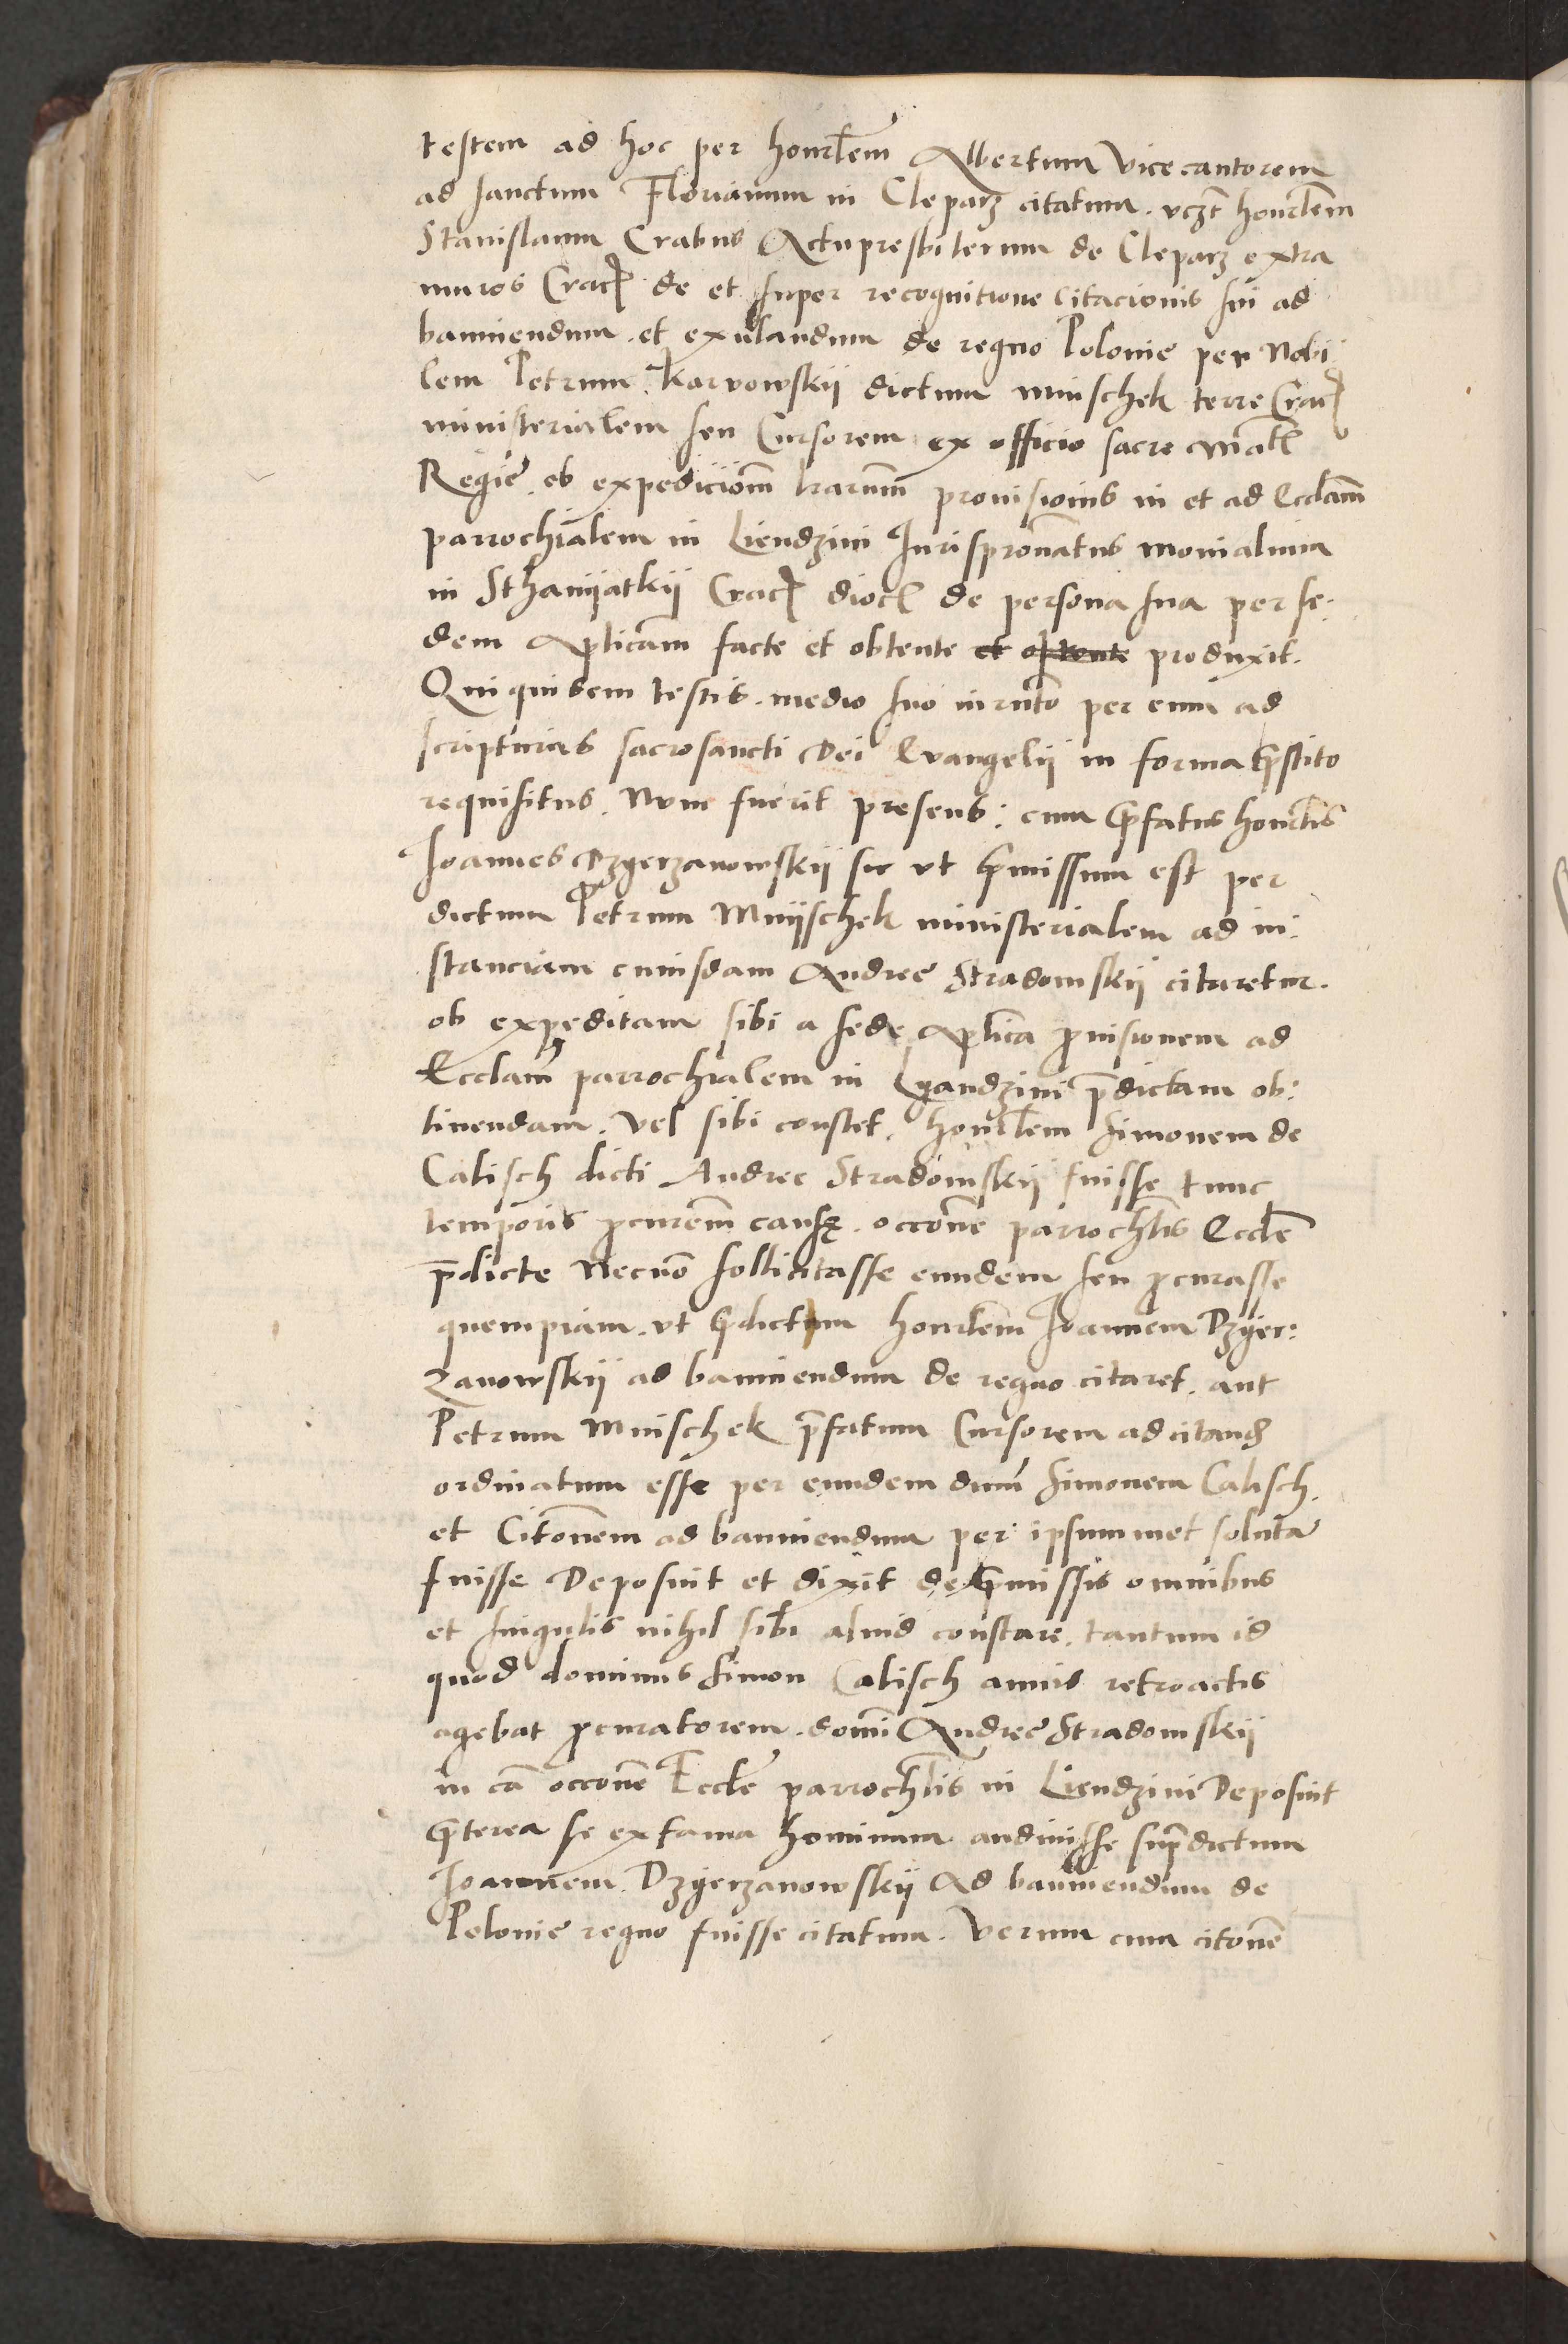 testem ad hoc per honorlem Albertum vicecantorem
ad sanctum Florianum in Cleparz citatum . vczt honorlem
Stanislaum Crabus Actupresbiterum de Cleparz extra
muros Crac de et super recognitione citacionis sui ad
banniendum . et exulandum de regno Polonie per Nobi
lem Petrum Karvowskij dictum mnischek terre Crac
ministerialem seu Cursorem ex officio sacre Matis
Regie . ob expedicionem lrarum provisionis in et ad Eccliam
parrochialem in Liendzini Jurispronatus monialium
in Sthanijatkij Crac dioc de persona sua per se:
dem Aplicam facte et obtente et obtente produxit.
Qui quidem testis . medio suo iurnto per eum ad
scripturas sacrosancti Dei Evangelij in forma prestito
requisitus . Num fuerit presens: cum prefatus honorlis
Joannes Dzgerzanowskij sic vt premissum est per
dictum Petrum Mnijschek ministerialem ad in:
stanciam cuiusdam Andree Stradomskij citaretur.
ob expeditam sibi a sede Aplica provisionem ad
Eccliam parrochialem in Lgandzini predictam ob:
tinendam . Vel sibi constet . honorlem Simonem de
Calisch dicti Andree Stradomskij fuisse tunc
temporis procurem causę . occone parrochlis Ecclie
predicte Necnon sollicitasse eundem seu procurasse
quempiam . vt predictum honorlem Joannem Dzger:
zanowskij ad banniendum de regno citaret . aut
Petrum Mnischek prefatum Cursorem ad citand
ordinatum esse per eundem dnum Simonem Calisch.
et Citonem ad banniendum per ipsummet soluta
fuisse Deposuit et dixit de premissis omnibus
et singulis nihil sibi aliud constare . tantum id
quod dominus Simon Calisch annis retroactis
agebat procuratorem . domi Andree Stradomskij
in ca occone Ecclie parrochlis in Liendzini Deposuit
preterea se ex fama hominum audiuisse supradictum
Joannem Dzgerzanowskij Ad banniendum de
Polonie regno fuisse citatum . Verum cum citone